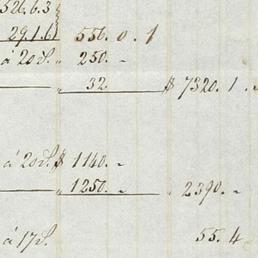 526.6.3
29.1.6 556.0.1
á 20 250.-
" 32 $ 7320.1.
á 20 $ 1140.-
" 1250.- " 2390.-
á 17 55.4